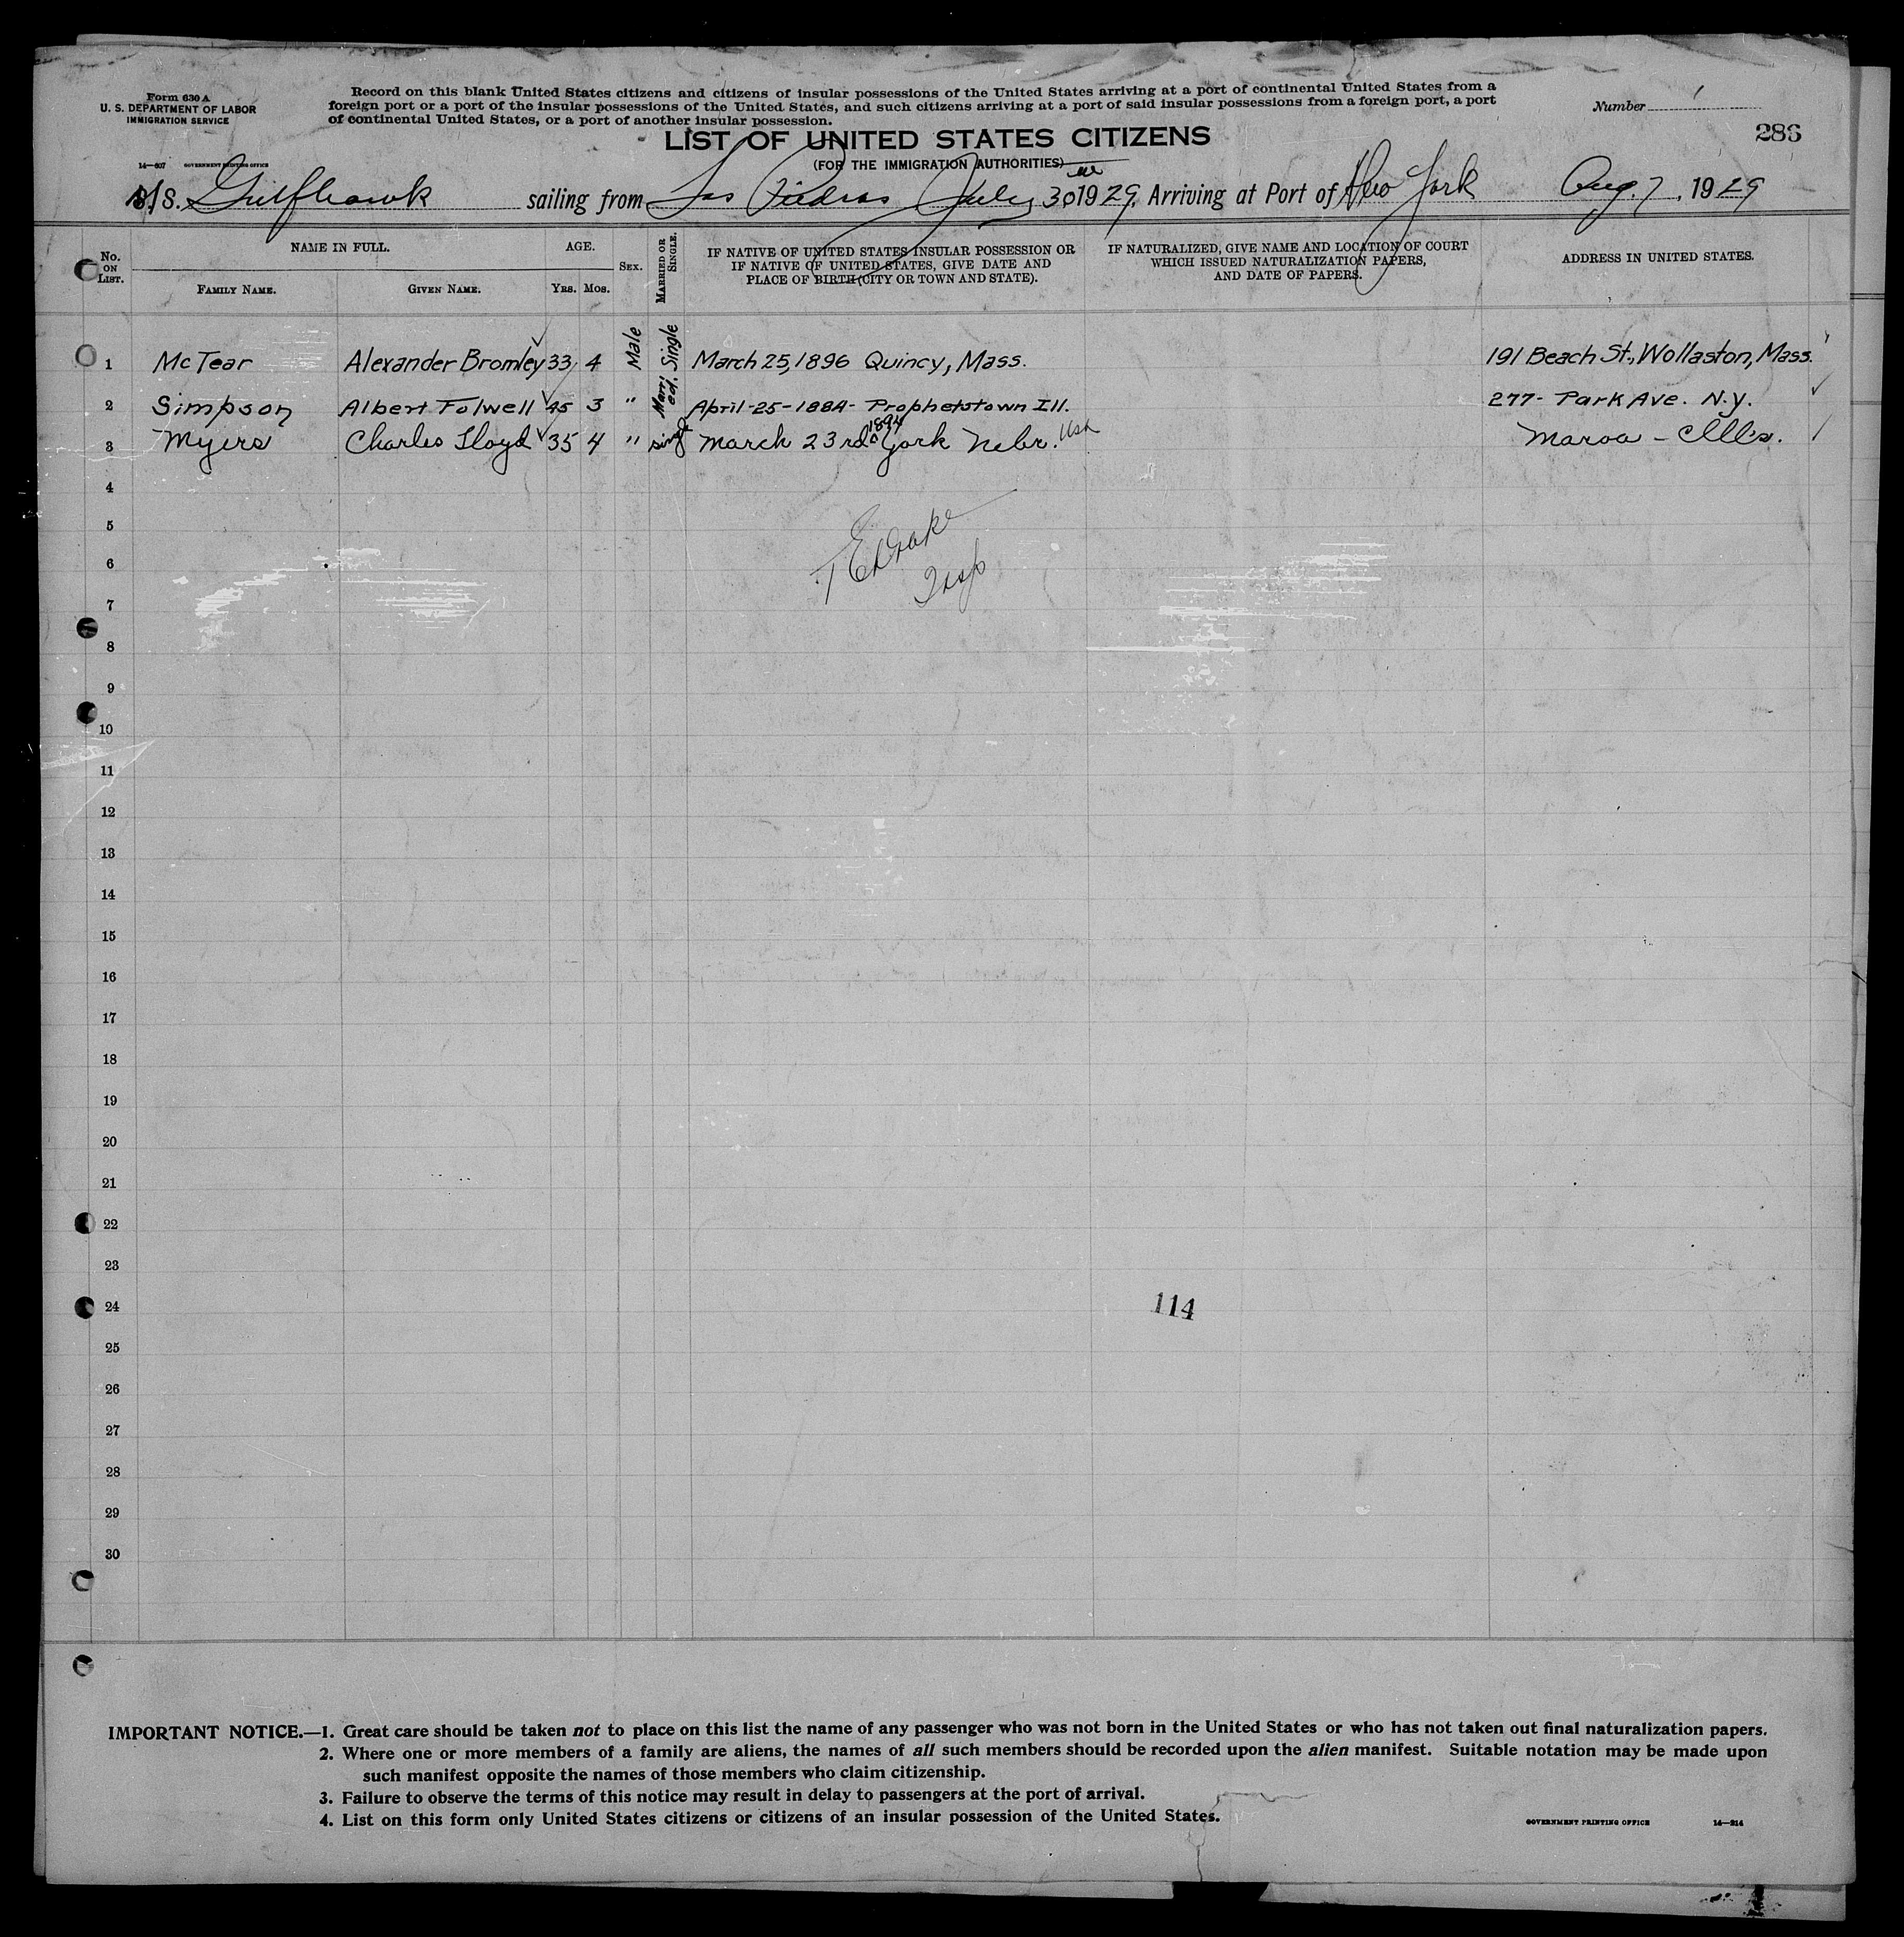 Form 630 A
U. S. DEPARTMENT OF LABOR
IMMIGRATION SERVICE
Record on this blank United States citizens and citizens of insular possessions of the United States arriving at a port of continental United States from a
foreign port or a port of the insular possessions of the United States, and such citizens arriving at a port of said insular possessions from a foreign port, a port
of continental United States, or a port of another insular possession.
Number 1
286
LIST OF UNITED STATES CITIZENS
(FOR THE IMMIGRATION AUTHORITIES)
14—507 GOVERNMENT PRINTING OFFICE
S. Gulfhawk sailing from Las Piedras July 30 1929, Arriving at Port of New York Aug. 7, 1929
No. ON LIST. NAME IN FULL. AGE. SEX. MARRIED OR SINGLE. IF NATIVE OF UNITED STATES INSULAR POSSESSION OR IF NATIVE OF UNITED STATES, GIVE DATE AND PLACE OF BIRTH (CITY OR TOWN AND STATE). IF NATURALIZED, GIVE NAME AND LOCATION OF COURT WHICH ISSUED NATURALIZATION PAPERS, AND DATE OF PAPERS. ADDRESS IN UNITED STATES.
FAMILY NAME. GIVEN NAME. YRS. MOS.
1 McTear Alexander Bromley 33 4 Male Single March 25, 1896 Quincy, Mass. 191 Beach St., Wollaston, Mass.
2 Simpson Albert Folwell 45 3 " Married. April-25-1884- Prophetstown Ill. 277- Park Ave. N.Y.
3 Myers Charles Lloyd 35 4 " single March 23rd 1894 York Nebr. USA Maroa - Ills.
4
5
6
7
8
9
10
11
12
13
14
15
16
17
18
19
20
21
22
23
24 114
25
26
27
28
29
30
IMPORTANT NOTICE.—1. Great care should be taken not to place on this list the name of any passenger who was not born in the United States or who has not taken out final naturalization papers.
2. Where one or more members of a family are aliens, the names of all such members should be recorded upon the alien manifest. Suitable notation may be made upon
such manifest opposite the names of those members who claim citizenship.
3. Failure to observe the terms of this notice may result in delay to passengers at the port of arrival.
4. List on this form only United States citizens or citizens of an insular possession of the United States.
GOVERNMENT PRINTING OFFICE 14—214